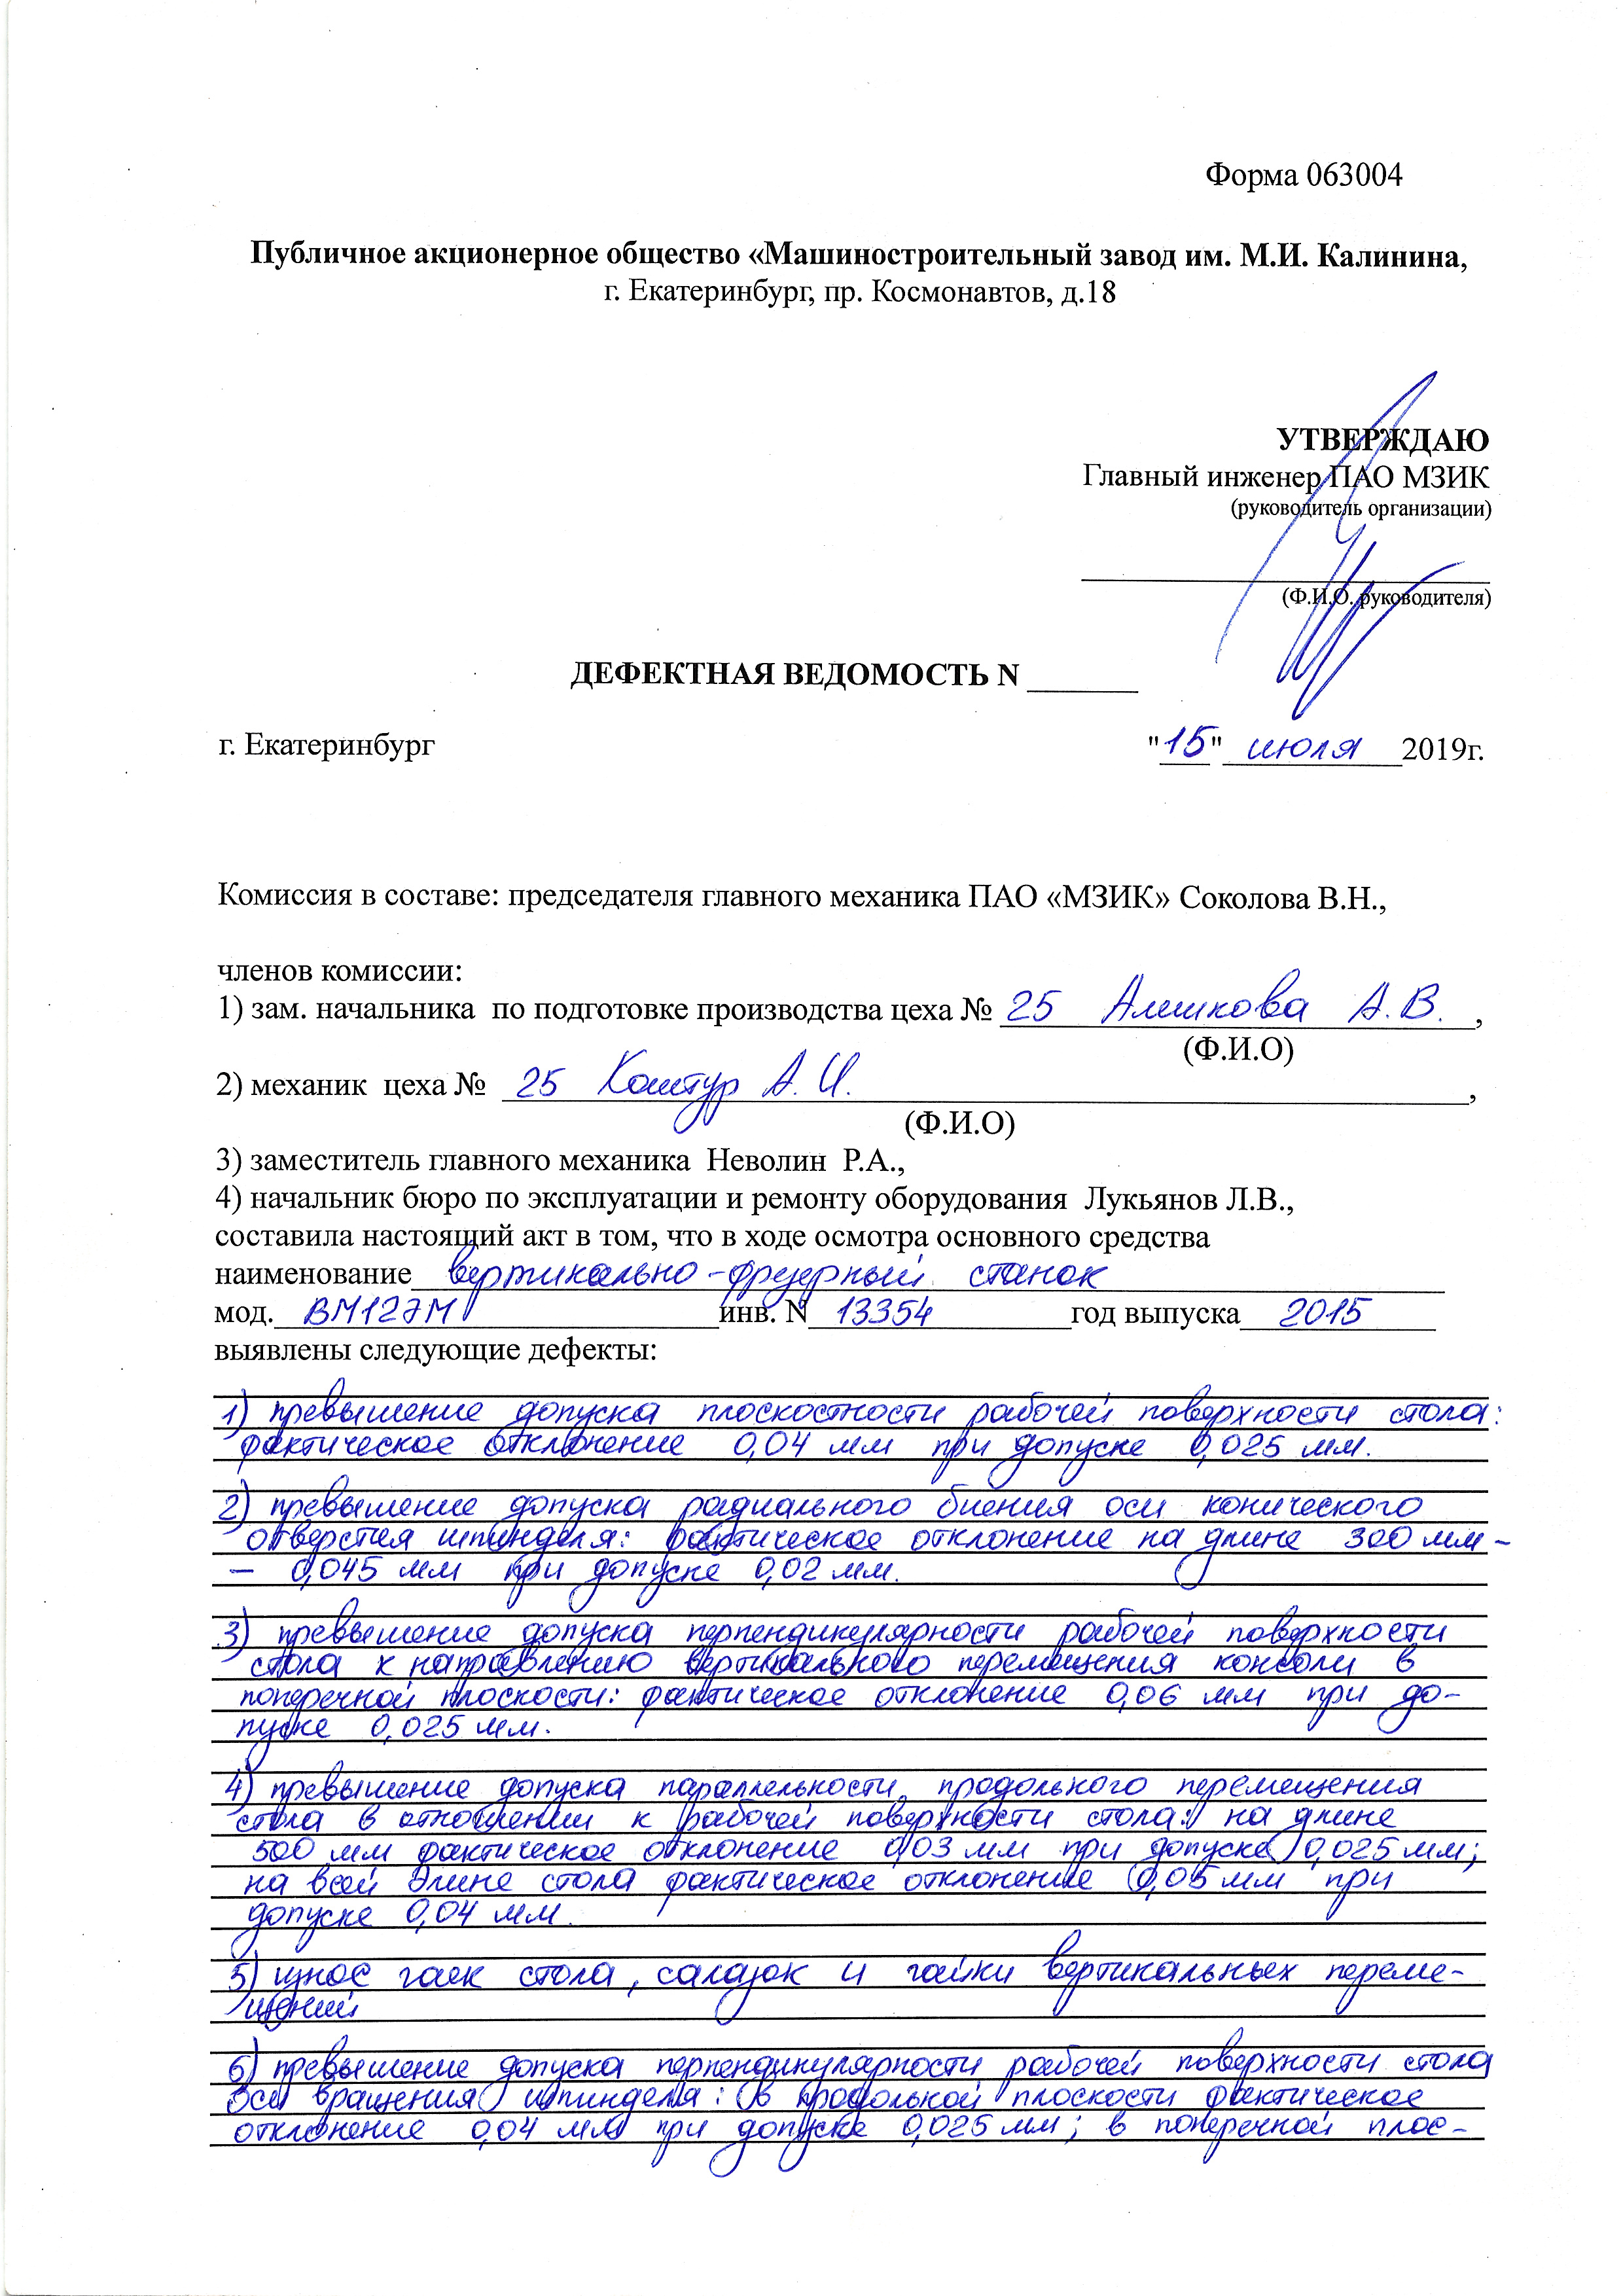 Форма 063004
Публичное акционерное общество «Машиностроительный завод им. М.И. Калинина,
г. Екатеринбург, пр. Космонавтов, д.18
УТВЕРЖДАЮ
Главный инженер ПАО МЗИК
(руководитель организации)
(Ф.И.О. руководителя)
ДЕФЕКТНАЯ ВЕДОМОСТЬ N ______
г. Екатеринбург "15" июля 2019г.
Комиссия в составе: председателя главного механика ПАО «МЗИК» Соколова В.Н.,
членов комиссии:
1) зам. начальника по подготовке производства цеха № 25 Алешкова А.В.,
(Ф.И.О)
2) механик цеха № 25 Коштур А.И.,
(Ф.И.О)
3) заместитель главного механика Неволин Р.А.,
4) начальник бюро по эксплуатации и ремонту оборудования Лукьянов Л.В.,
составила настоящий акт в том, что в ходе осмотра основного средства
наименование вертикально-фрезерный станок
мод. ВМ127М инв. N 13354 год выпуска 2015
выявлены следующие дефекты:
1) превышение допуска плоскостности рабочей поверхности стола:
фактическое отклонение 0,04 мм при допуске 0,025 мм.
2) превышение допуска радиального биения оси конического
отверстия шпинделя: фактическое отклонение на длине 300 мм -
- 0,045 мм при допуске 0,02 мм.
3) превышение допуска перпендикулярности рабочей поверхности
стола к направлению вертикального перемещения консоли в
поперечной плоскости: фактическое отклонение 0,06 мм при до-
пуске 0,025 мм.
4) превышение допуска параллельности продольного перемещения
стола в отношении к рабочей поверхности стола: на длине
500 мм фактическое отклонение 0,03 мм при допуске 0,025 мм;
на всей длине стола фактическое отклонение 0,05 мм при
допуске 0,04 мм.
5) износ гаек стола, салазок и гайки вертикальных переме-
щений
6) превышение допуска перпендикулярности рабочей поверхности стола
оси вращения шпинделя: в продольной плоскости фактическое
отклонение 0,04 мм при допуске 0,025 мм; в поперечной плос-